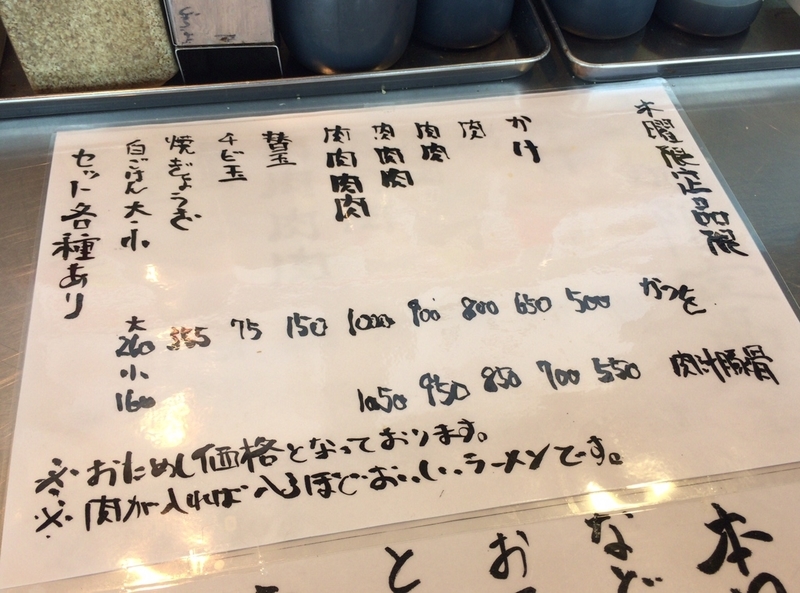 木曜限定品限
かつを
肉汁豚骨
かけ
500
550
肉
650
700
肉肉
800
850
肉肉肉
900
950
肉肉肉肉
1000
1050
替玉
150
チビ玉
75
焼ぎょうざ
白ごはん大・小
大
260
小
160
セット各種あり
※おためし価格となっております。
※肉が入れば入るほどおいしいラーメンです。
本
など
お
と